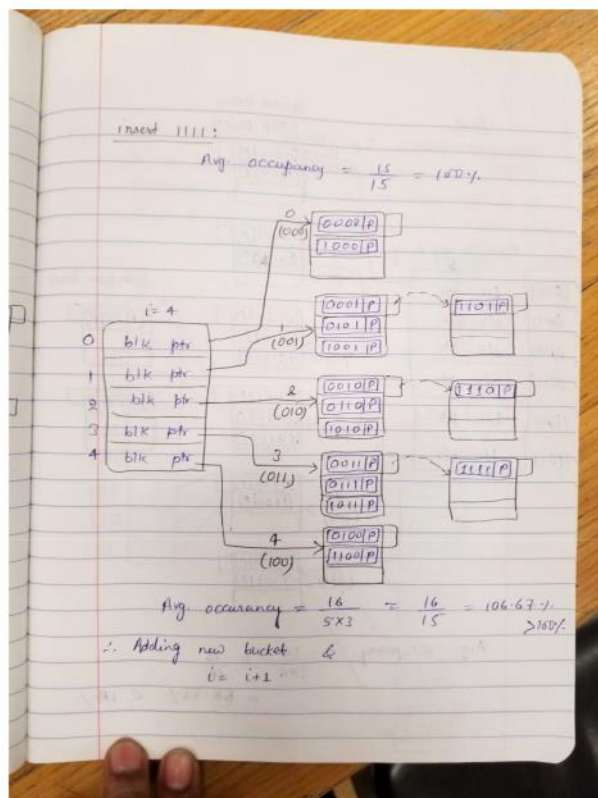 insert 1111:
Avg. occupancy = 15/15 = 100%
0
(000)
0000 P
1000 P
i = 4
0 blk ptr
1 blk ptr
2 blk ptr
3 blk ptr
4 blk ptr
1
(001)
0001 P
0101 P
1001 P
1101 P
2
(010)
0010 P
0110 P
1010 P
1110 P
3
(011)
0011 P
0111 P
1011 P
1111 P
4
(100)
0100 P
1100 P
Avg. occurancy = 16/5×3 = 16/15 = 106.67%
>100%
∴ Adding new bucket &
i = i+1